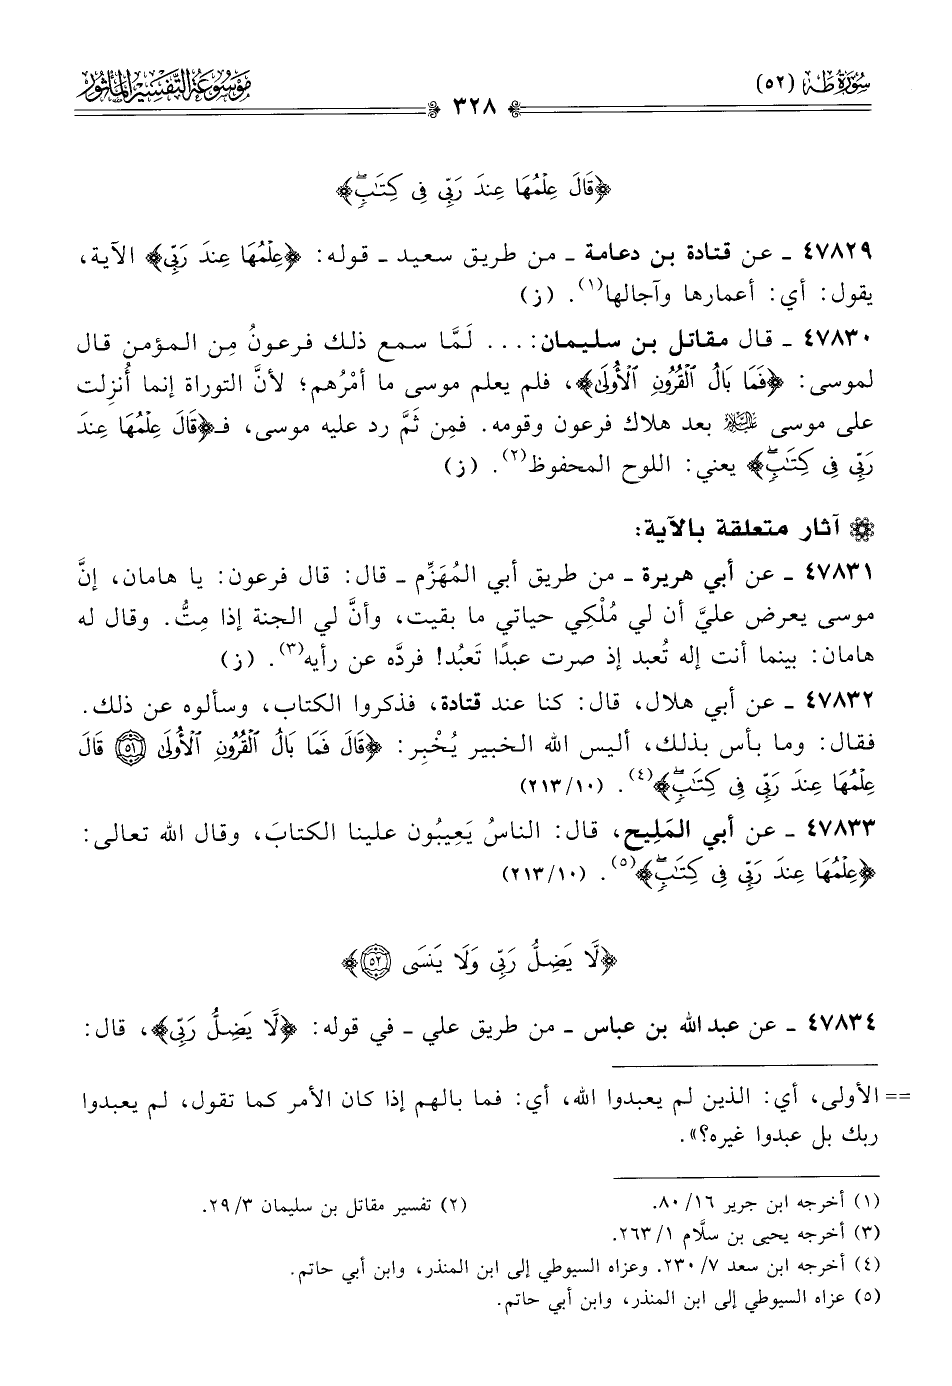 سُورَةُ طٰهٰ (٥٢)
٣٢٨
مَوْسُوعَةُ التَّفْسِيرِ المَأْثُورِ
﴿قَالَ عِلْمُهَا عِندَ رَبِّى فِى كِتَٰبٍۖ﴾
٤٧٨٢٩ ـ عن قتادة بن دعامة ـ من طريق سعيد ـ قوله: ﴿عِلْمُهَا عِندَ رَبِّى﴾ الآية،
يقول: أي: أعمارها وآجالها(١). (ز)
٤٧٨٣٠ ـ قال مقاتل بن سليمان: ... لَمَّا سمع ذلك فرعونُ مِن المؤمن قال
لموسى: ﴿فَمَا بَالُ ٱلْقُرُونِ ٱلْأُولَىٰ﴾، فلم يعلم موسى ما أمْرُهم؛ لأنَّ التوراة إنما أُنزِلت
على موسى ﷺ بعد هلاك فرعون وقومه. فمِن ثَمَّ رد عليه موسى، فـ﴿قَالَ عِلْمُهَا عِندَ
رَبِّى فِى كِتَٰبٍۖ﴾ يعني: اللوح المحفوظ(٢). (ز)
آثار متعلقة بالآية:
٤٧٨٣١ ـ عن أبي هريرة ـ من طريق أبي المُهَزِّم ـ قال: قال فرعون: يا هامان، إنَّ
موسى يعرض عليَّ أن لي مُلْكِي حياتي ما بقيت، وأنَّ لي الجنة إذا مِتُّ. وقال له
هامان: بينما أنت إله تُعبد إذ صرت عبدًا تَعبُد! فردَّه عن رأيه(٣). (ز)
٤٧٨٣٢ ـ عن أبي هلال، قال: كنا عند قتادة، فذكروا الكتاب، وسألوه عن ذلك.
فقال: وما بأس بذلك، أليس الله الخبير يُخْبِر: ﴿قَالَ فَمَا بَالُ ٱلْقُرُونِ ٱلْأُولَىٰ ٥١ قَالَ
عِلْمُهَا عِندَ رَبِّى فِى كِتَٰبٍۖ﴾(٤). (٢١٣/١٠)
٤٧٨٣٣ ـ عن أبي المَلِيح، قال: الناسُ يَعِيبُون علينا الكتابَ، وقال الله تعالى:
﴿عِلْمُهَا عِندَ رَبِّى فِى كِتَٰبٍۖ﴾(٥). (٢١٣/١٠)
﴿لَّا يَضِلُّ رَبِّى وَلَا يَنسَى ٥٢﴾
٤٧٨٣٤ ـ عن عبد الله بن عباس ـ من طريق علي ـ في قوله: ﴿لَّا يَضِلُّ رَبِّى﴾، قال:
== الأولى، أي: الذين لم يعبدوا الله، أي: فما بالهم إذا كان الأمر كما تقول، لم يعبدوا
ربك بل عبدوا غيره؟».
(١) أخرجه ابن جرير ١٦/ ٨٠. (٢) تفسير مقاتل بن سليمان ٣/ ٢٩.
(٣) أخرجه يحيى بن سلَّام ١/ ٢٦٣.
(٤) أخرجه ابن سعد ٧/ ٢٣٠. وعزاه السيوطي إلى ابن المنذر، وابن أبي حاتم.
(٥) عزاه السيوطي إلى ابن المنذر، وابن أبي حاتم.